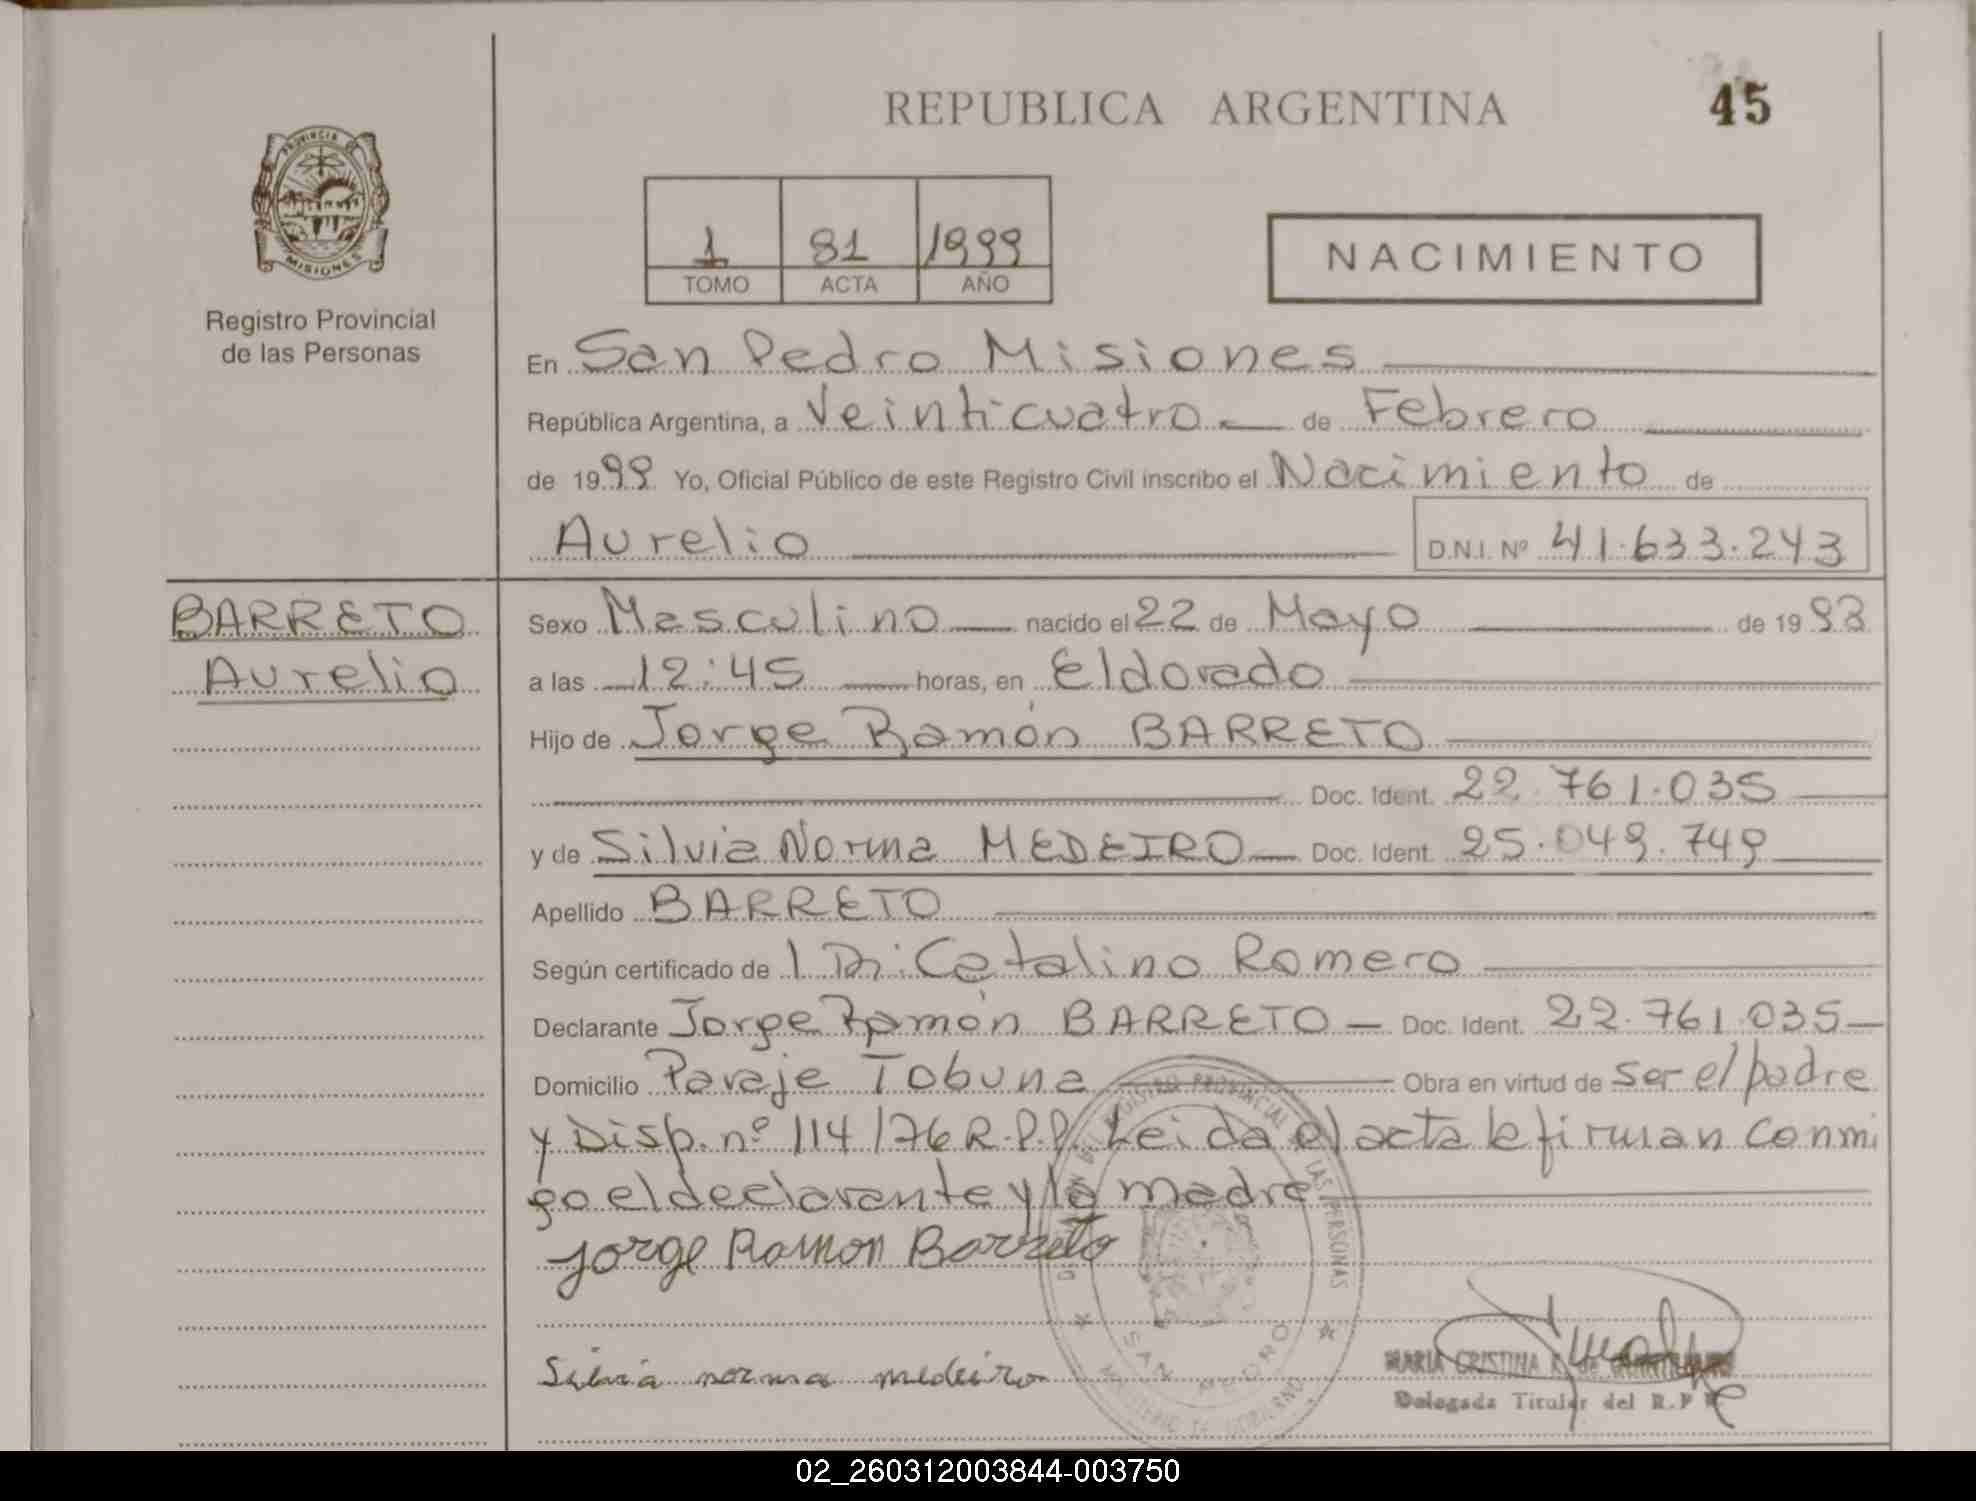 REPUBLICA ARGENTINA
45
PROVINCIA DE
MISIONES
Registro Provincial
de las Personas
1 81 1999
TOMO ACTA AÑO
NACIMIENTO
En San Pedro Misiones
República Argentina, a Veinticuatro de Febrero
de 1999 Yo, Oficial Público de este Registro Civil inscribo el Nacimiento de
Aurelio D.N.I. Nº 41.633.243
BARRETO
Aurelio
Sexo Masculino nacido el 22 de Mayo de 19
a las 12:45 horas, en Eldorado
Hijo de Jorge Ramón BARRETO
Doc. Ident. 22.761.035
y de Silvia Norma MEDEIRO Doc. Ident. 25.049.749
Apellido BARRETO
Según certificado de Catalino Romero
Declarante Jorge Ramón BARRETO Doc. Ident. 22.761.035
Domicilio Paraje Tobuna Obra en virtud de ser el padre
y Disp. nº 114/76 R.P.P. Leida el acta la firman conmi
go el declarante y la madre
Jorge Ramon Barreto
REGISTRO PROVINCIAL DE LAS PERSONAS
SAN PEDRO
MINISTERIO DE GOBIERNO
Silvia norma medeiro
MARIA CRISTINA
Delegada Titular del R.P.P.
02_260312003844-003750